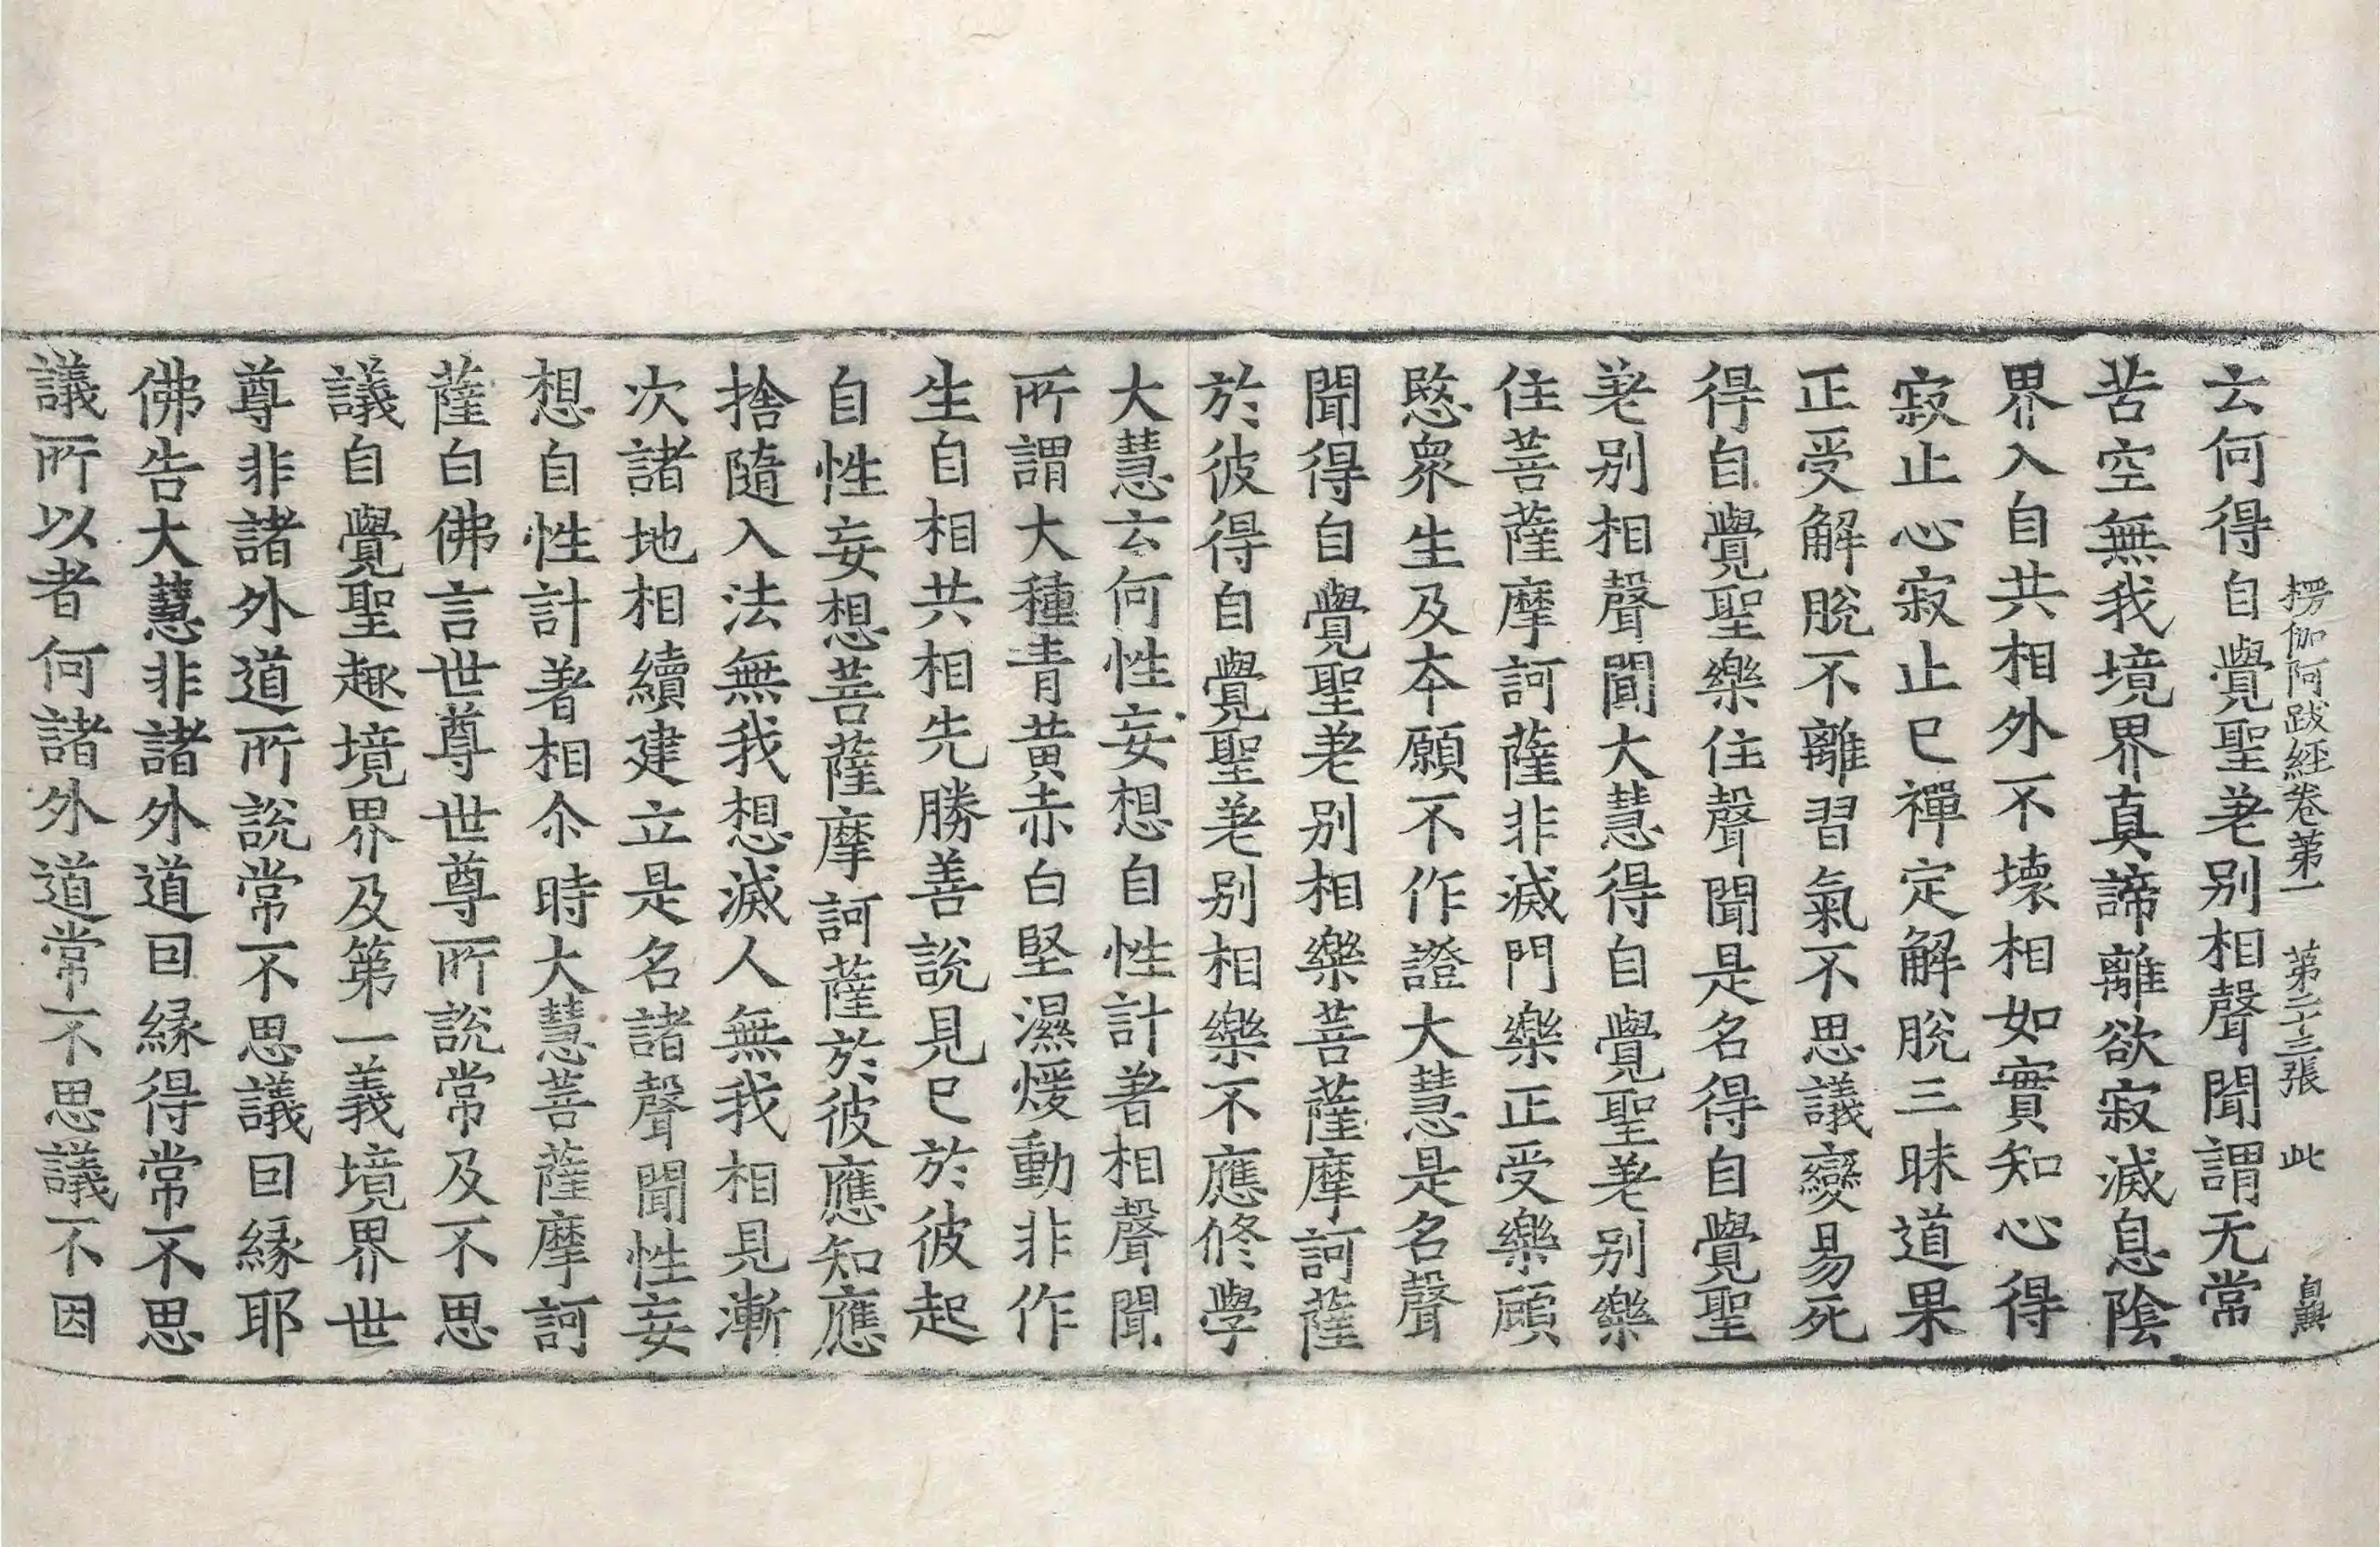 楞伽阿跋經卷苐一　苐二十三張　此
云何得自覺聖差別相聲聞謂无常
苦空無我境界真諦離欲寂滅息陰
界入自共相外不壞相如實知心得
寂止心寂止已禪定解脫三昧道果
正受解脫不離習氣不思議變易死
得自覺聖樂住聲聞是名得自覺聖
差別相聲聞大慧得自覺聖差別樂
住菩薩摩訶薩非滅門樂正受樂顧
愍衆生及本願不作證大慧是名聲
聞得自覺聖差別相樂菩薩摩訶薩
於彼得自覺聖差別相樂不應修學
大慧云何性妄想自性計著相聲聞
所謂大種青黃赤白堅濕煖動非作
生自相共相先勝善說見已於彼起
自性妄想菩薩摩訶薩於彼應知應
捨隨入法無我想滅人無我相見漸
次諸地相續建立是名諸聲聞性妄
想自性計著相尒時大慧菩薩摩訶
薩白佛言世尊世尊所說常及不思
議自覺聖趣境界及第一義境界世
尊非諸外道所說常不思議囙緣耶
佛告大慧非諸外道囙緣得常不思
議所以者何諸外道常不思議不因